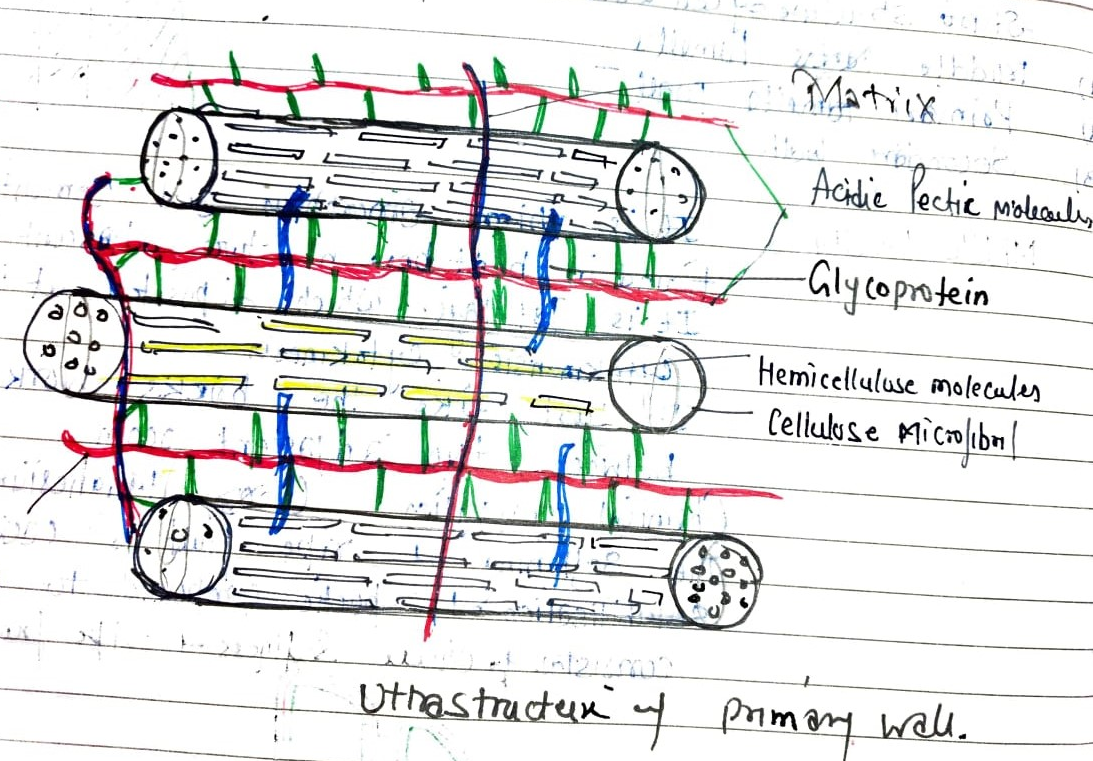 Matrix
Acidic Pectic Molecules
Glycoprotein
Hemicellulose molecules
Cellulose Microfibril
Uttrastructure of primary wall.